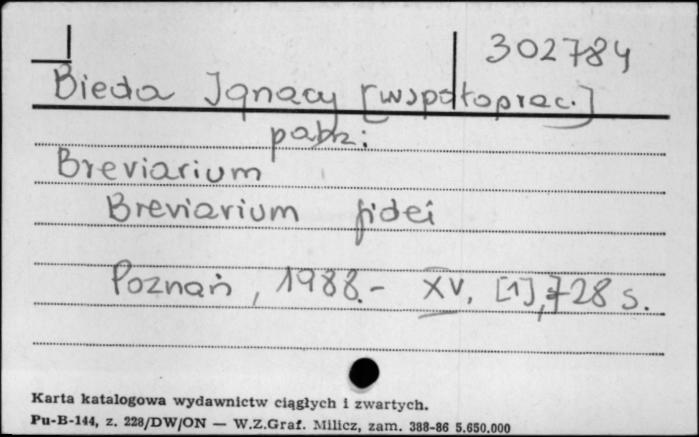 302784
Bieda Ignacy [współoprac.]
patrz:
Breviarium
Breviarium fidei
Poznań, 1988.- XV, [1], 728 s.
Karta katalogowa wydawnictw ciągłych i zwartych.
Pu-B-144, z. 228/DW/ON — W.Z.Graf. Milicz, zam. 388-86 5.650.000